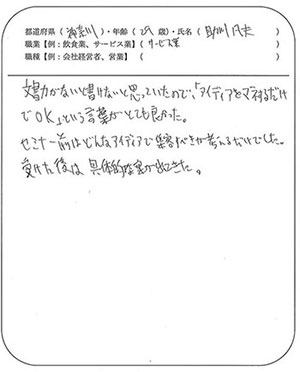 都道府県(神奈川)・年齢(29歳)・氏名(助川 )
職業【例:飲食業、サービス業】(サービス業)
職種【例:会社経営者、営業】( )
文才がないと書けないと思っていたので、「アイディアをマネするだけ
でOK」という言葉がとても良かった。
セミナー前はどんなアイディアで集客すべきか考えるだけでした。
受けた後は具体的な案が出てきた。